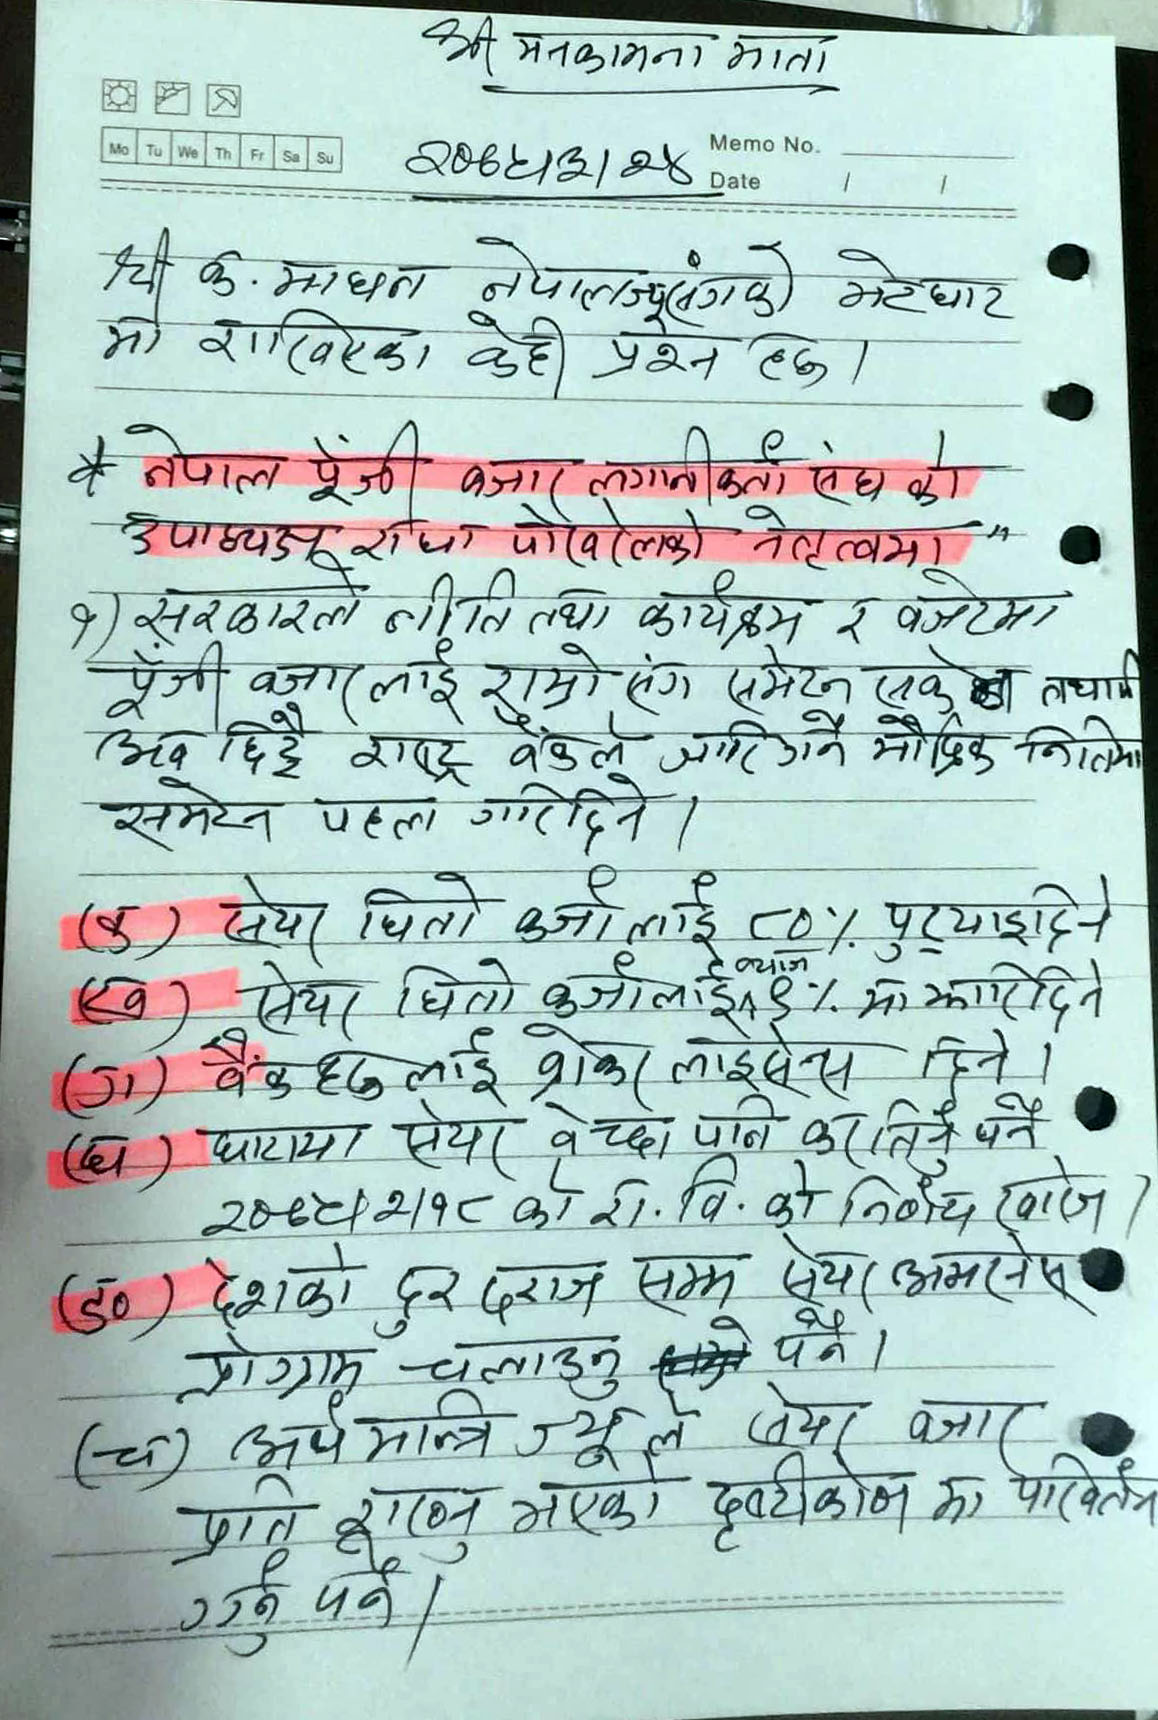 श्री मनकामना माता
Mo Tu We Th Fr Sa Su
Memo No.
२०७९/३/२४
Date / /
श्री क. माधव नेपालज्यूसंगको भेटघाट
मा राखिएका केही प्रश्न हरु ।
* नेपाल पूँजी बजार लगानीकर्ता संघ को
उपाध्यक्ष राधा पोखरेलको नेतृत्वमा "
१) सरकारले नीति तथा कार्यक्रम र बजेटमा
पूँजी बजार लाई राम्रो संग समेट्न सकेन तथापी
अब छिट्टै राष्ट्र बैंकले जारि गर्ने मौद्रिक नितिमा
समेट्न पहल गरिदिने ।
(क) सेयर धितो कर्जा लाई ८०% पुर्‍याइदिने
(ख) सेयर धितो कर्जालाई ब्याज ९% मा झारिदिने
(ग) बैंक हरु लाई ब्रोकर लाइसेन्स दिने ।
(घ) घाटामा सेयर बेच्दा पनि कर तिर्नु पर्ने
२०७९/२/१८ को रा. वि. को निर्णय खारेज ।
(ङ) देशको दुर दराज सम्म सेयर अवारनेस
प्रोग्राम चलाउनु पर्ने ।
(च) अर्थ मन्त्रि ज्यू ले सेयर बजार
प्रति राख्नु भएको दृष्टीकोण मा परिवर्तन
गर्नु पर्ने ।